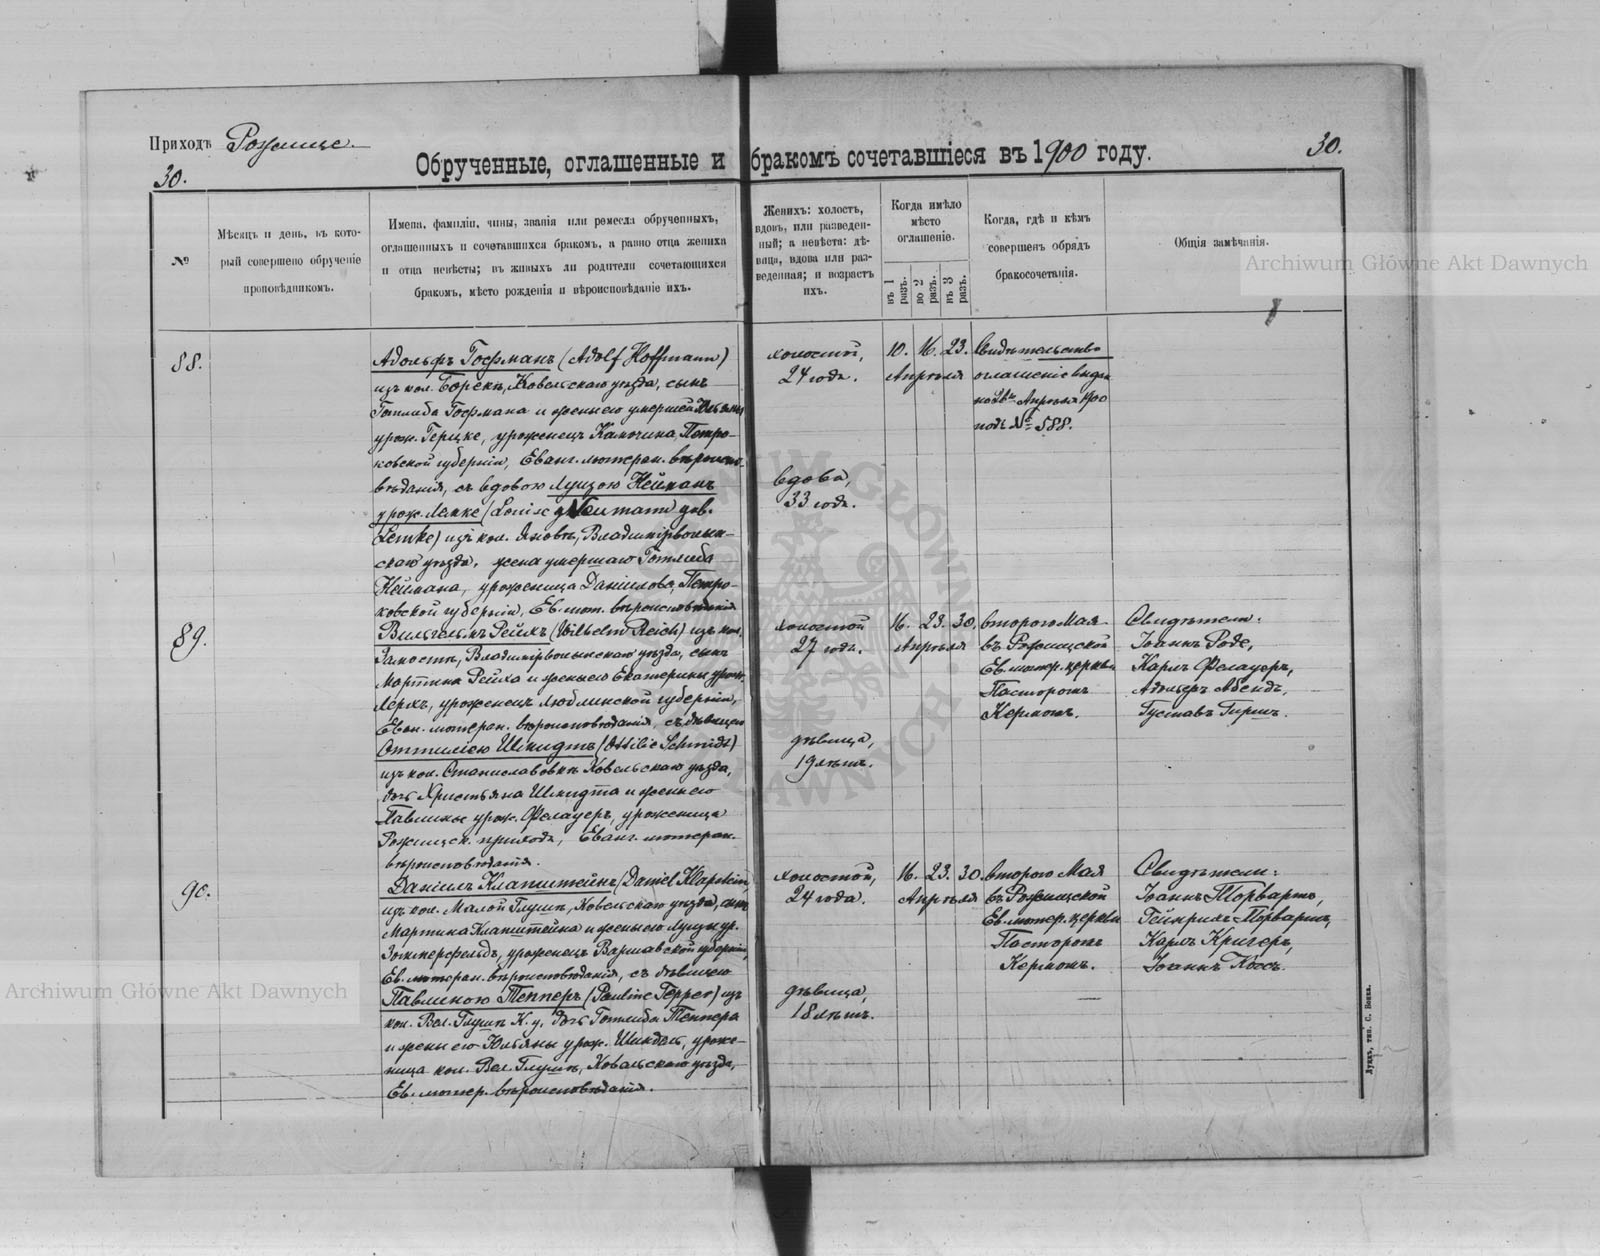 Приходъ Рожище.
30.
Обрученные, оглашенные и бракомъ сочетавшіеся въ 1900 году.
30.
№
Мѣсяцъ и день, въ кото-
рый совершено обрученіе
проповѣдникомъ.
Имена, фамиліи, чины, званія или ремесла обрученныхъ,
оглашенныхъ и сочетавшихся бракомъ, а равно отца жениха
и отца невѣсты; въ живыхъ ли родители сочетающихся
бракомъ, мѣсто рожденія и вѣроисповѣданіе ихъ.
Женихъ: холостъ,
вдовъ, или разведен-
ный; а невѣста: дѣ-
вица, вдова или раз-
веденная; и возрастъ
ихъ.
Когда имѣло
мѣсто
оглашеніе.
въ 1 разъ.
во 2 разъ.
въ 3 разъ.
Когда, гдѣ и кѣмъ
совершенъ обрядъ
бракосочетанія.
Общія замѣчанія.
Archiwum Główne Akt Dawnych
88.
Адольфъ Гофманъ (Adolf Hoffmann)
изъ кол. Борекъ, Ковельскаго уѣзда, сынъ
Готлиба Гофмана и жены его умершей Юльяны
урож. Герцке, уроженецъ Петро-
ковской губерніи, Еванг. лютеран. вѣроиспо-
вѣданія, съ вдовою Луизою Нейманъ
урож. Лемке (Louise Neumann geb.
Lemke) изъ кол. Яновка, Владимірволын-
скаго уѣзда, жена умершаго Готлиба
Неймана, уроженица Петро-
ковской губерніи, Ев. лют. вѣроисповѣданія
холостой,
24 года.
вдова,
33 года.
10. 16. 23.
Апрѣля
Свидѣтельство
оглашеніе выдан
но Апрѣля 1900
подъ № 588.
89.
Вильгельмъ Рейхъ (Wilhelm Reich) изъ кол.
Замостье, Владимірволынскаго уѣзда, сынъ
Мартина Рейха и жены его Екатерины урож.
Лерхъ, уроженецъ Люблинской губерніи,
Еван. лютеран. вѣроисповѣданія, съ дѣвицею
Оттилею Шмидтъ (Ottilie Schmidt)
изъ кол. Станиславовка Ковельскаго уѣзда,
дочь Христьяна Шмидта и жены его
Павлины урож. Фелауеръ, уроженица
Рожищск. прихода, Еванг. лютеран.
вѣроисповѣданія.
холостой
27 года.
дѣвица,
19 лѣтъ.
16. 23. 30.
Апрѣля
второго Мая
въ Рожищской
Ев. лютер. церкви
Пасторомъ
Кермомъ.
Свидѣтели:
Іоаннъ Роде,
Карлъ Фелауеръ,
Адольфъ Абендъ,
Густавъ Гиршъ.
90.
Даніилъ Клапштейнъ (Daniel Klapstein)
изъ кол. Малой Глушѣ, Ковельскаго уѣзда, сынъ
Мартина Клапштейна и жены его Луизы ур.
Зоммерфельдъ, уроженецъ Варшавской губерніи,
Ев. лютеран. вѣроисповѣданія, съ дѣвицею
Павлиною Тепперъ (Pauline Tepper) изъ
кол. Вел. Глушѣ К. у. дочь Готлиба Теппера
и жены его Юльяны урож. Шиндель, уроже-
ница кол. Вел. Глушѣ, Ковельскаго уѣзда,
Ев. лютер. вѣроисповѣданія.
холостой,
24 года.
дѣвица,
18 лѣтъ.
16. 23. 30.
Апрѣля
второго Мая
въ Рожищской
Ев. лютер. церкви
Пасторомъ
Кермомъ.
Свидѣтели:
Іоаннъ Торвартъ,
Гейнрихъ Торвартъ,
Карлъ Кригеръ,
Іоаннъ Коссъ.
Archiwum Główne Akt Dawnych
Луцкъ, тип. С. Бонка.